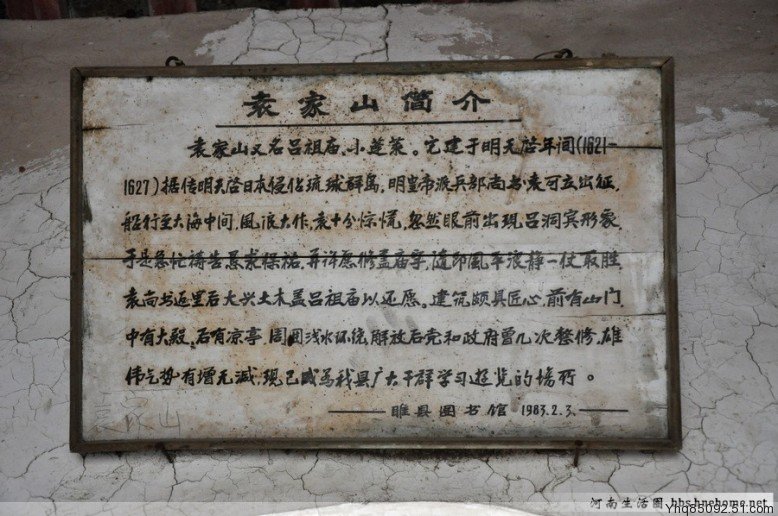 袁家山简介
袁家山又名吕祖庙、小蓬莱。它建于明天启年间(1621-
1627)据传明天启日本侵佔琉球群岛,明皇帝派兵部尚书袁可立出征,
船行至大海中间,風浪大作,袁十分惊慌,忽然眼前出现吕洞宾形象,
于是急忙祷告,恳求保祐,并许愿修盖庙宇,随即風平浪静一仗取胜,
袁尚书返里后大兴土木盖吕祖庙以还愿。建筑颇具匠心,前有山门
中有大殿,后有凉亭,周围浅水环绕,解放后党和政府曾几次整修,雄
伟气势有增无减,现已成为我县广大干群学习遊览的場所。
——睢县图书馆 1983.2.3.——
河南生活圈 bbs.hnehome.net
Yhq85092.51.com